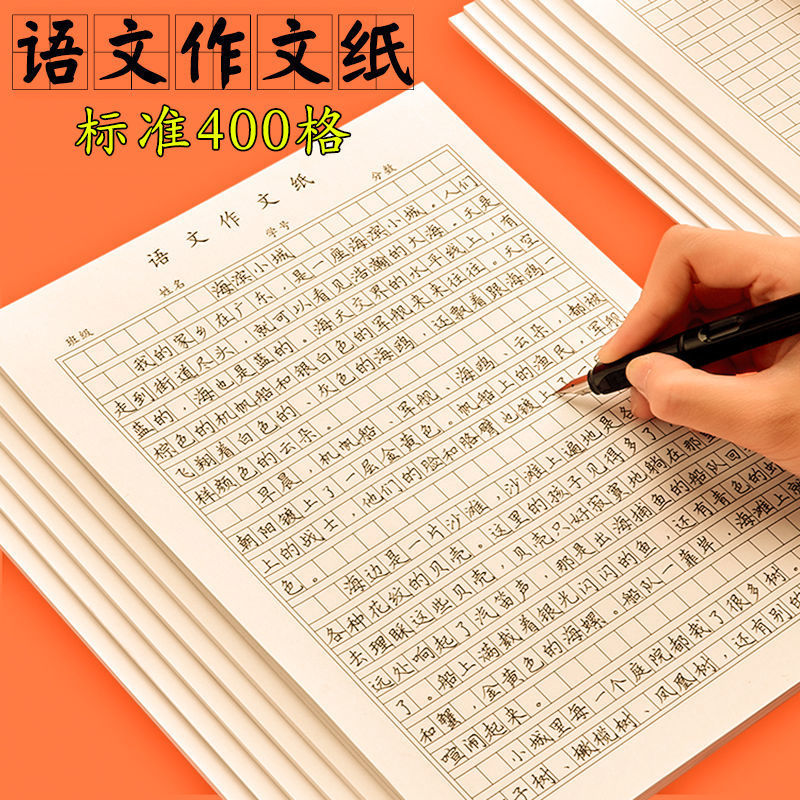 语文作文纸
标准400格
语文作文纸
班级 姓名 学号 分数
海滨小城
我的家乡在广东，是一座海滨小城。人们
走到街道尽头，就可以看见浩瀚的大海。天是
蓝的，海也是蓝的。海天交界的水平线上，有
棕色的机帆船和银白色的军舰来来往往。天空
飞翔着白色的、灰色的海鸥，还飘着跟海鸥一
样颜色的云朵。
早晨，机帆船、军舰、海鸥、云朵，都被
朝阳镀上了一层金黄色。帆船上的渔民，军舰
上的战士，他们的脸和胳臂也镀上了一
色。
海边是一片沙滩，沙滩上遍地是各
各种花纹的贝壳。这里的孩子见得多了
去理睬这些贝壳，贝壳只好寂寞地躺在那里
远处响起了汽笛声，那是出海捕鱼的船队回
了。船上满载着银光闪闪的鱼，还有青色的虾
和蟹，金黄色的海螺。船队一靠岸，海滩上就
喧闹起来。
小城里每一个庭院都栽了很多树。
子树、橄榄树、凤凰树，还有别的